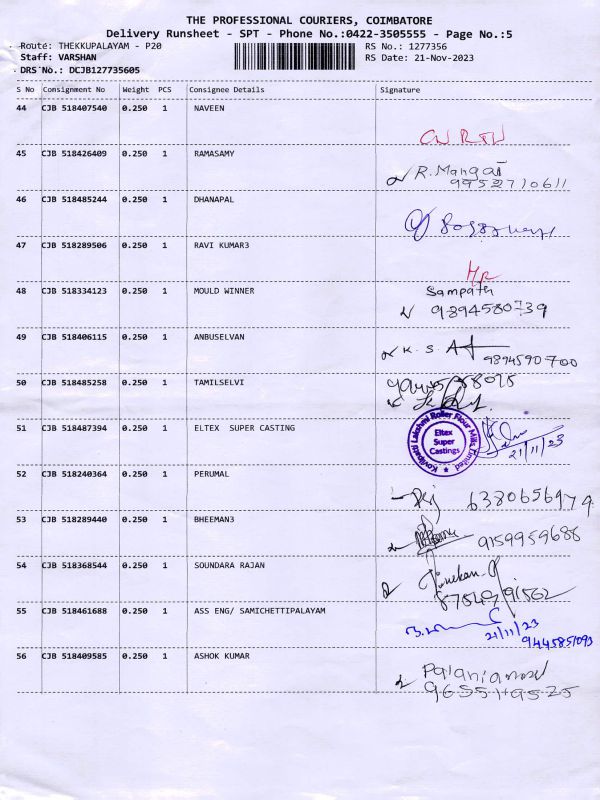 THE PROFESSIONAL COURIERS, COIMBATORE
Delivery Runsheet - SPT - Phone No.:0422-3505555 - Page No.:5
Route: THEKKUPALAYAM - P20 RS No.: 1277356
Staff: VARSHAN RS Date: 21-Nov-2023
DRS No.: DCJB127735605
S No Consignment No Weight PCS Consignee Details Signature
44 CJB 518407540 0.250 1 NAVEEN
45 CJB 518426409 0.250 1 RAMASAMY
R. Mangai
9952710611
46 CJB 518485244 0.250 1 DHANAPAL
47 CJB 518289506 0.250 1 RAVI KUMAR3
48 CJB 518334123 0.250 1 MOULD WINNER Sampath
9894580739
49 CJB 518406115 0.250 1 ANBUSELVAN
K. S. A
9894590700
50 CJB 518485258 0.250 1 TAMILSELVI
51 CJB 518487394 0.250 1 ELTEX SUPER CASTING
Kovilpatti Lakshmi Roller Flour Mills Limited
Eltex
Super
Castings
21/11/23
52 CJB 518240364 0.250 1 PERUMAL
6380656979
53 CJB 518289440 0.250 1 BHEEMAN3
9159959688
54 CJB 518368544 0.250 1 SOUNDARA RAJAN
55 CJB 518461688 0.250 1 ASS ENG/ SAMICHETTIPALAYAM
21/11/23
9445851093
56 CJB 518409585 0.250 1 ASHOK KUMAR
9655119525